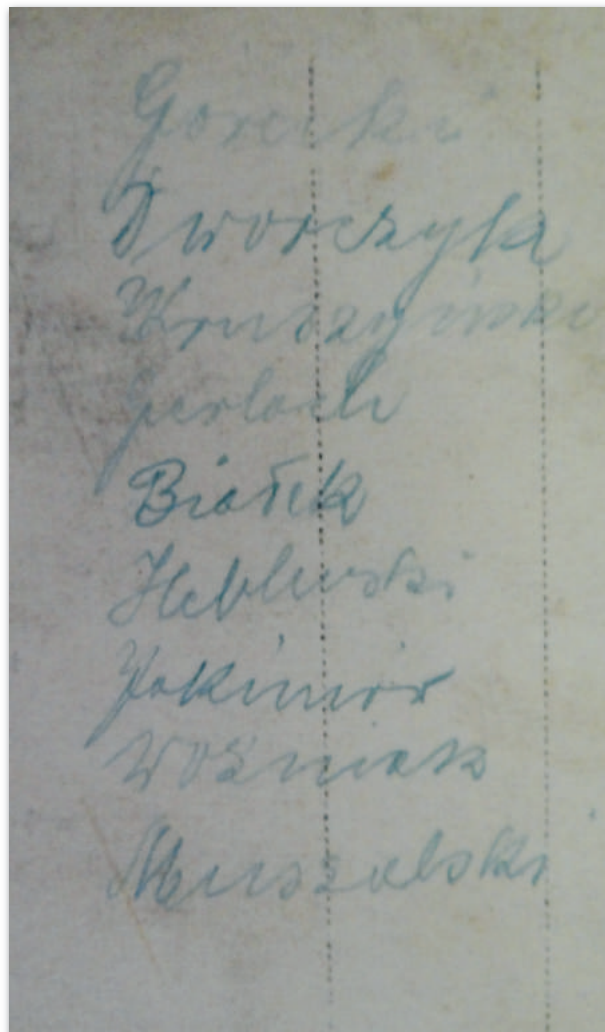 Gorecki
Dworczyk
Kruszyński
Gerlach
Białek
Heblewski
Jakimów
Woźniak
Muszalski